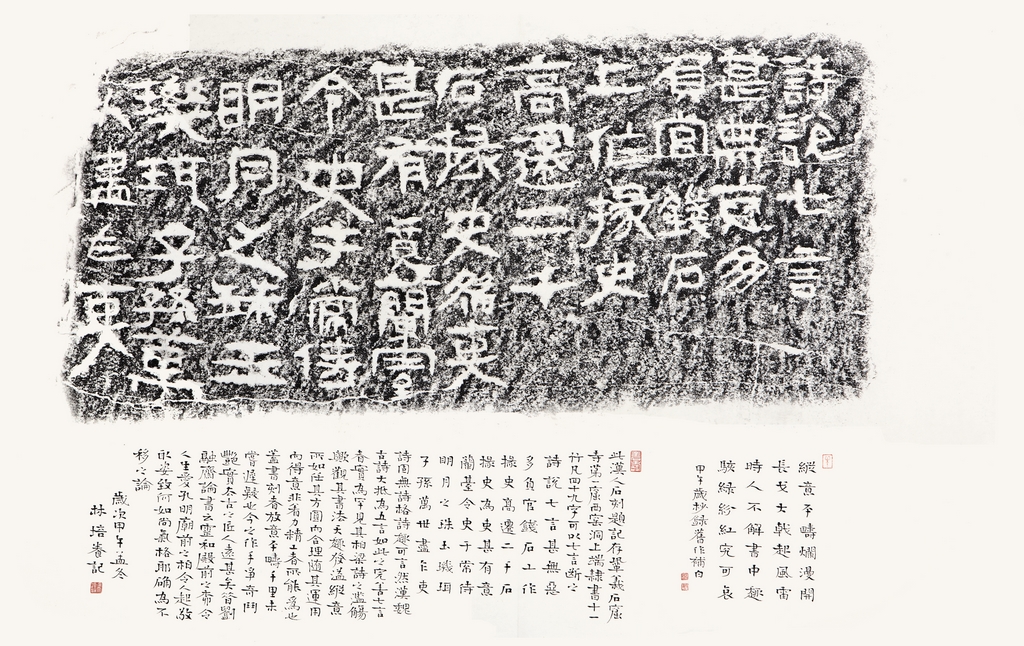 詩說七言
甚無忘多
負官錢石
上作掾史
高遷二千
石掾史為吏
甚有意蘭臺
令史于常侍
明月之珠玉
璣珥子孫萬
盡作吏
縱意平疇爛漫開
長戈大戟起風雷
時人不解書中趣
駭綠紛紅定可哀
甲午歲杪錄舊作補白
此漢人石刻題記存鞏義石窟
寺第一窟西窯洞上端隸書十一
行凡四十九字可以七言斷之
詩說七言甚無忘
多負官錢石上作
掾史高遷二千石
掾史為吏甚有意
蘭臺令史于常侍
明月之珠玉璣珥
子孫萬世盡作吏
詩固無詩格詩趣可言然漢魏
言詩大抵為五言如此之完善七言
者實為罕見其柏梁詩之濫觴
歟觀其書法天趣發溢縱意
所如任其方圓內合理隨其運用
而得意非着力精工者所能為也
蓋書刻者放意平疇千里未
嘗遲疑也今之作手爭奇鬥
艷實太古之人遠甚矣昔劉
融齋論書云靈和殿前之柳令
人生愛孔明廟前之柏令人起敬
姿致何如尚氣格耶確為不
移之論
歲次甲午孟冬
林培養記